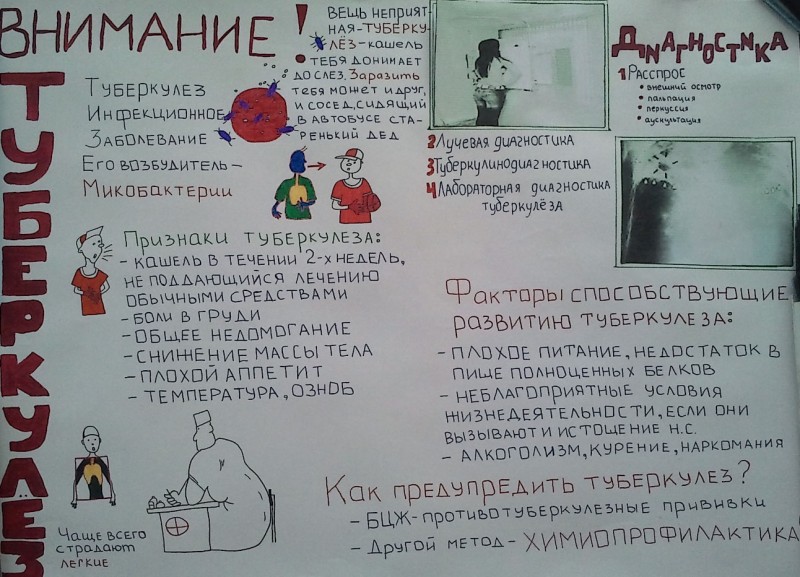 ВНИМАНИЕ !
ТУБЕРКУЛЁЗ
ВЕЩЬ НЕПРИЯТ-
НАЯ-ТУБЕРКУ-
ЛЁЗ-КАШЕЛЬ
ТЕБЯ ДОНИМАЕТ
ДО СЛЕЗ. Заразить
ТЕБЯ МОЖЕТ И ДРУГ,
И СОСЕД, СИДЯЩИЙ
В АВТОБУСЕ СТА-
РЕНЬКИЙ ДЕД
Туберкулез
Инфекционное
Заболевание
Его возбудитель-
Микобактерии
Признаки туберкулеза:
- КАШЕЛЬ В ТЕЧЕНИИ 2-Х НЕДЕЛЬ,
НЕ ПОДДАЮЩИЙСЯ ЛЕЧЕНИЮ
ОБЫЧНЫМИ СРЕДСТВАМИ
- БОЛИ В ГРУДИ
- ОБЩЕЕ НЕДОМОГАНИЕ
- СНИЖЕНИЕ МАССЫ ТЕЛА
- ПЛОХОЙ АППЕТИТ
- ТЕМПЕРАТУРА, ОЗНОБ
Чаще всего
страдают
легкие
ДИАГНОСТИКА
1 Расспрос
• внешний осмотр
• пальпация
• перкуссия
• аускультация
2 Лучевая диагностика
3 Туберкулинодиагностика
4 Лабораторная диагностика
туберкулёза
Факторы способствующие
развитию туберкулеза:
- ПЛОХОЕ ПИТАНИЕ, НЕДОСТАТОК В
ПИЩЕ ПОЛНОЦЕННЫХ БЕЛКОВ
- НЕБЛАГОПРИЯТНЫЕ УСЛОВИЯ
ЖИЗНЕДЕЯТЕЛЬНОСТИ, ЕСЛИ ОНИ
ВЫЗЫВАЮТ И ИСТОЩЕНИЕ Н.С.
- АЛКОГОЛИЗМ, КУРЕНИЕ, НАРКОМАНИЯ
Как предупредить туберкулез?
- БЦЖ-противотуберкулезные прививки
- Другой метод- ХИМИОПРОФИЛАКТИКА